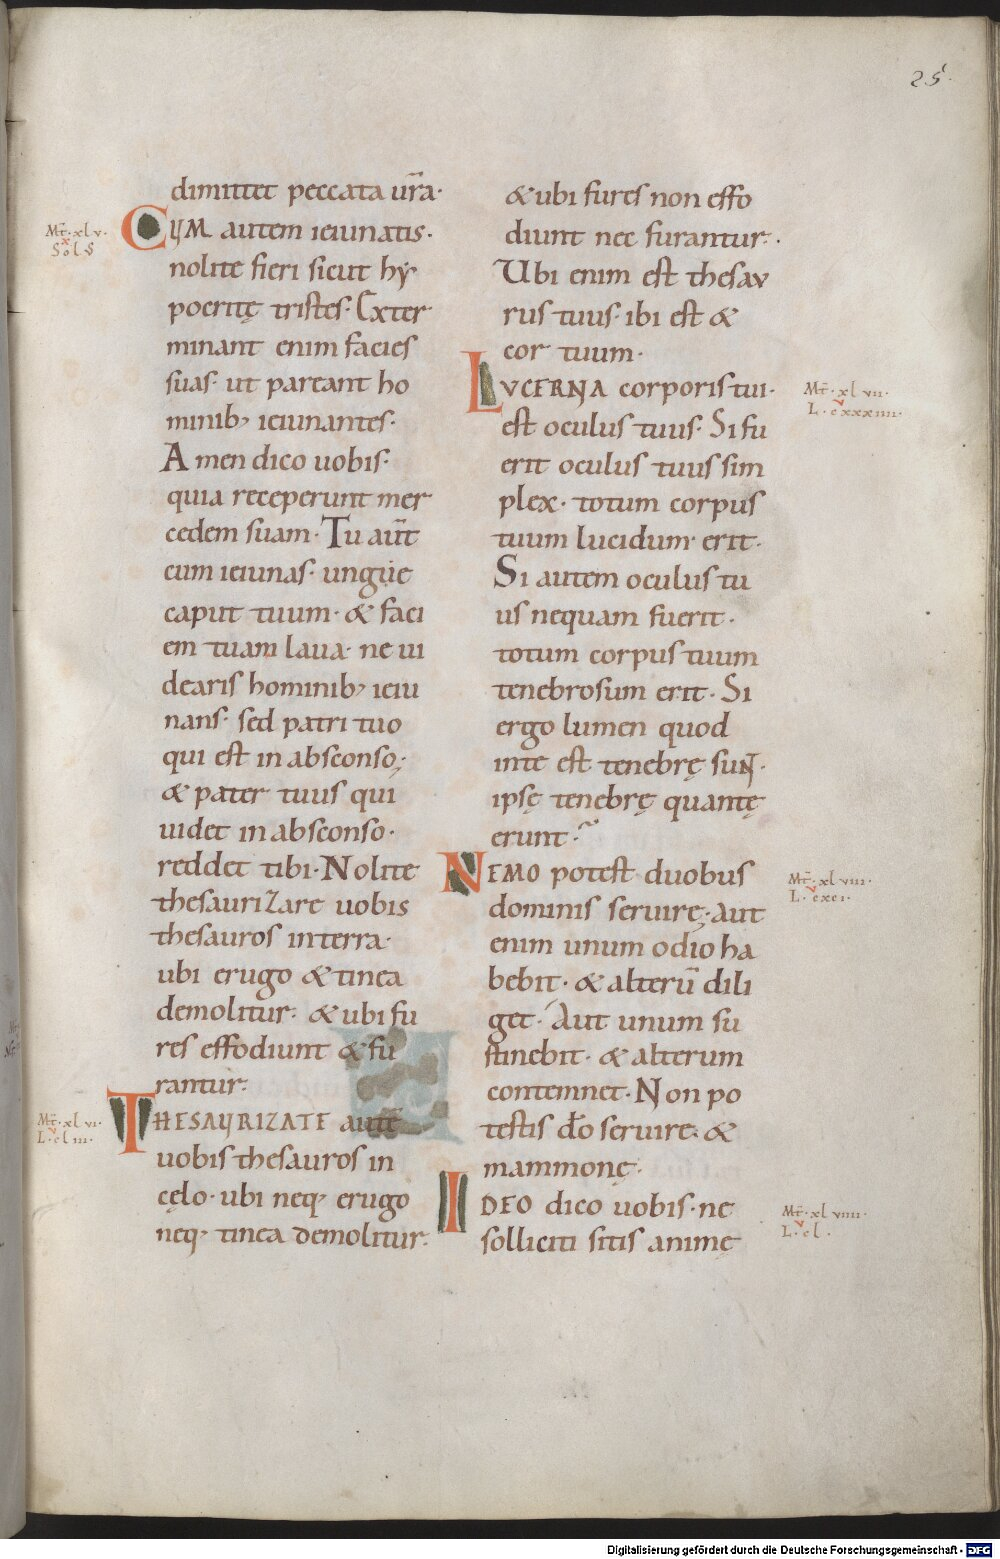 25
dimittet peccata ur̄a·
Mt̄·xlv·
Sol S
CUM autem ieiunatis·
nolite fieri sicut hẏ
pocritę tristes· Exter
minant enim facies
suas· ut pareant ho
minib; ieiunantes·
Amen dico uobis·
quia receperunt mer
cedem suam· Tu aut̄
cum ieiunas· ungue
caput tuum· & faci
em tuam laua· ne ui
dearis hominib; ieiu
nans· sed patri tuo
qui est in absconso;
& pater tuus qui
uidet in absconso·
reddet tibi· Nolite
thesaurizare uobis
thesauros in terra·
ubi erugo & tinea
demolitur· & ubi fu
res effodiunt & fu
rantur·
Mt̄·xlvi·
L·cliii·
THESAURIZATE autē
uobis thesauros in
cęlo· ubi neq; erugo
neq; tinea demolitur·
& ubi fures non effo
diunt nec furantur·
Ubi enim est thesau
rus tuus· ibi est &
cor tuum·
LUCERNA corporis tui·
Mt̄·xlvii·
L·cxxxiiii·
est oculus tuus· Si fu
erit oculus tuus sim
plex· totum corpus
tuum lucidum erit·
Si autem oculus tu
us nequam fuerit·
totum corpus tuum
tenebrosum erit· Si
ergo lumen quod
in te est tenebrę sunt·
ipsę tenebrę quantę
erunt?
NEMO potest duobus
Mt̄·xlviii·
L·cxci·
dominis seruire· Aut
enim unum odio ha
bebit· & alterū dili
get· Aut unum su
stinebit· & alterum
contemnet· Non po
testis dō seruire· &
mammonę·
IDEO dico uobis· ne
Mt̄·xlviiii·
L·cl·
solliciti sitis animę
Digitalisierung gefördert durch die Deutsche Forschungsgemeinschaft - DFG